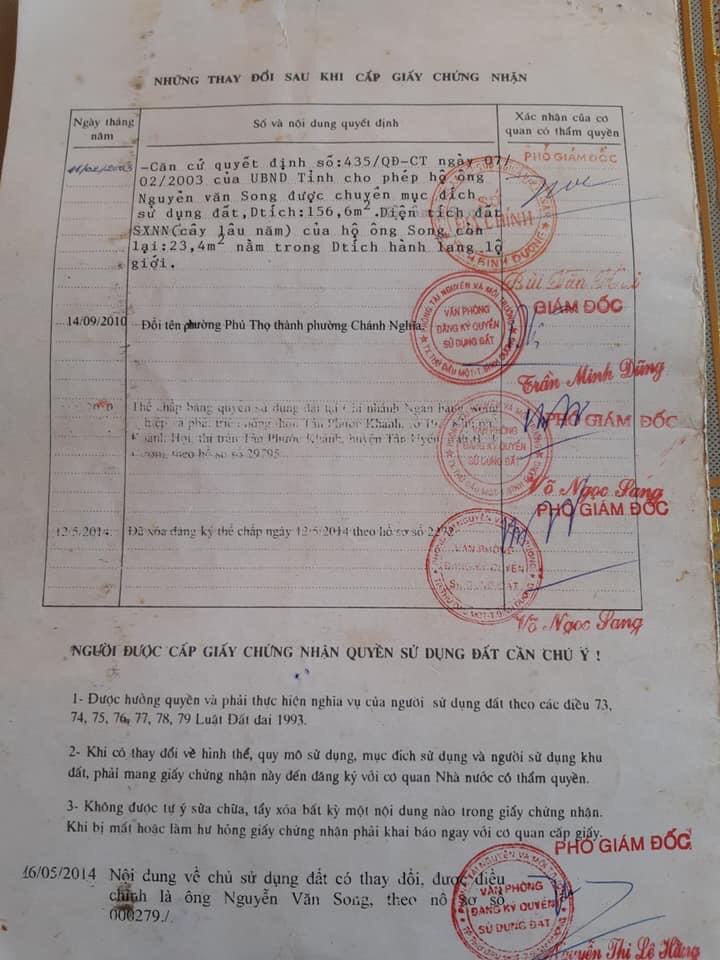 NHỮNG THAY ĐỔI SAU KHI CẤP GIẤY CHỨNG NHẬN
Ngày tháng năm
Số và nội dung quyết định
Xác nhận của cơ quan có thẩm quyền
11/02/2003
-Căn cứ quyết định số:435/QĐ-CT ngày 07/
02/2003 của UBND Tỉnh cho phép hộ ông
Nguyễn văn Song được chuyển mục đích
sử dụng đất,Dtích:156,6m².Diện tích đất
SXNN(cây lâu năm) của hộ ông Song còn
lại:23,4m² nằm trong Dtích hành lang lộ
giới.
PHÓ GIÁM ĐỐC
SỞ
ĐỊA CHÍNH
BÌNH DƯƠNG
14/09/2010
Đổi tên phường Phú Thọ thành phường Chánh Nghĩa.
PHÒNG TÀI NGUYÊN VÀ MÔI TRƯỜNG
VĂN PHÒNG
ĐĂNG KÝ QUYỀN
SỬ DỤNG ĐẤT
TX.THỦ DẦU MỘT-T.BÌNH DƯƠNG
GIÁM ĐỐC
Trần Minh Dũng
Thế chấp bằng quyền sử dụng đất tại Chi nhánh Ngân hàng Nông
Tân Phước Khánh,
Khánh Hội, thị trấn Tân Phước Khánh, huyện Tân Uyên,
theo hồ sơ số 29795.
VĂN PHÒNG
ĐĂNG KÝ QUYỀN
SỬ DỤNG ĐẤT
PHÓ GIÁM ĐỐC
Võ Ngọc Sang
12/5/2014
Đã xóa đăng ký thế chấp ngày 12/5/2014 theo hồ sơ số
VĂN PHÒNG
ĐĂNG KÝ QUYỀN
SỬ DỤNG ĐẤT
PHÓ GIÁM ĐỐC
Võ Ngọc Sang
NGƯỜI ĐƯỢC CẤP GIẤY CHỨNG NHẬN QUYỀN SỬ DỤNG ĐẤT CẦN CHÚ Ý !
1- Được hưởng quyền và phải thực hiện nghĩa vụ của người sử dụng đất theo các điều 73,
74, 75, 76, 77, 78, 79 Luật Đất đai 1993.
2- Khi có thay đổi về hình thể, quy mô sử dụng, mục đích sử dụng và người sử dụng khu
đất, phải mang giấy chứng nhận này đến đăng ký với cơ quan Nhà nước có thẩm quyền.
3- Không được tự ý sửa chữa, tẩy xóa bất kỳ một nội dung nào trong giấy chứng nhận.
Khi bị mất hoặc làm hư hỏng giấy chứng nhận phải khai báo ngay với cơ quan cấp giấy.
16/05/2014 Nội dung về chủ sử dụng đất có thay đổi, được điều
chỉnh là ông Nguyễn Văn Song, theo hồ sơ số
000279./.
PHÓ GIÁM ĐỐC
VĂN PHÒNG
ĐĂNG KÝ QUYỀN
SỬ DỤNG ĐẤT
Nguyễn Thị Lê Hằng